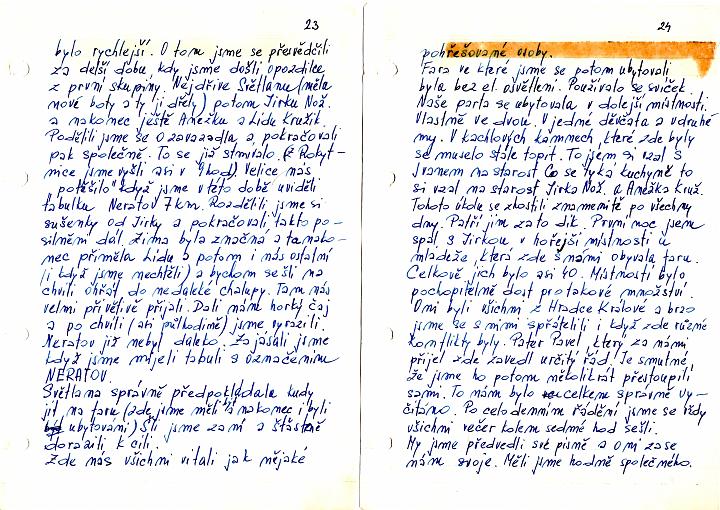 23
bylo rychlejší. O tom jsme se přesvědčili
za delší dobu, kdy jsme došli opozdilce
z první skupiny. Nejdříve Světlanu (měla
nové boty a ty ji dřely) potom Jirku Nož.
a nakonec ještě Anežku a Lídu Kružík.
Podělili jsme se o zavazadla a pokračovali
pak společně. To se již stmívalo. (z Rokyt-
nice jsme vyšli asi v hod) Velice nás
potěšilo když jsme v této době uviděli
tabulku Neratov 7km. Rozdělili jsme si
sušenky od Jirky a pokračovali takto po-
silněni dál. Zima byla značná a ta nako-
nec přiměla Lídu a potom i nás ostatní
(i když jsme nechtěli) a bychom se šli na
chvíli ohřát do nedaleké chalupy. Tam nás
velmi přívětivě přijali. Dali nám horký čaj
a po chvíli (asi půlhodině) jsme vyrazili.
Neratov již nebyl daleko. Zajásali jsme
když jsme míjeli tabuli s označením
NERATOV.
Světlana správně předpokládala kudy
jít na faru (zde jsme měli a nakonec i byli
ubytováni) Šli jsme za ní a šťastně
dorazili k cíli.
Zde nás všichni vítali jak nějaké
24
pohřešované osoby.
Fara ve které jsme se potom ubytovali
byla bez el. osvětlení. Používalo se svíček.
Naše parta se ubytovala v dolejší místnosti.
Vlastně ve dvou. V jedné děvčata a v druhé
my. V kachlových kamnech, které zde byly
se muselo stále topit. To jsem si vzal s
Ivanem na starost. Co se týká kuchyně to
si vzal na starost Jirka Nož. a Anežka Kruž.
Tohoto úkolu se zhostili znamenitě po všechny
dny. Patří jim za to dík. První noc jsem
spal s Jirkou v hořejší místnosti u
mládeže, která zde s námi obývala faru.
Celkově jich bylo asi 40. Místností bylo
pochopitelně dost pro takové množství.
Oni byli všichni z Hradce Králové a brzo
jsme se s nimi spřátelili i když zde různé
konflikty byly. Pater Pavel, který za námi
přijel zde zavedl určitý řád. Je smutné,
že jsme ho potom několikrát přestoupili
sami. To nám bylo celkem správně vy-
čítáno. Po celodenním řádění jsme se vždy
všichni večer kolem sedmé hod sešli.
My jsme předvedli své písně a oni zase
nám svoje. Měli jsme hodně společného.